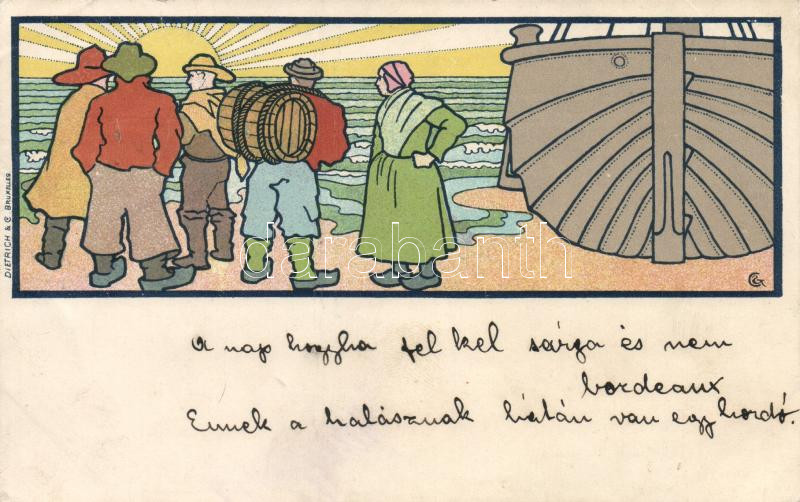 DIETRICH & C° BRUXELLES
darabanth
CG
A nap hogyha fel kel sárga és nem
bordeaux
Ennek a halásznak hátán van egy hordó.